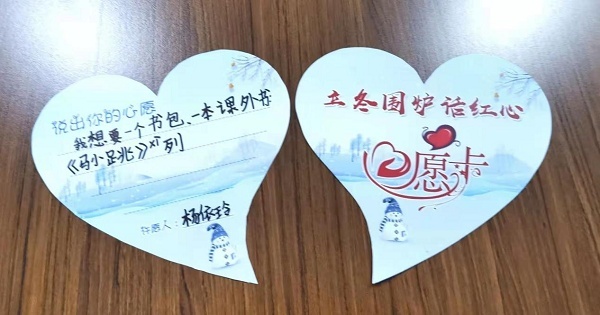 说出你的心愿
我想要一个书包、一本课外书
《马小跳》xi列
许愿人：杨依玲
立冬围炉话红心
心愿卡